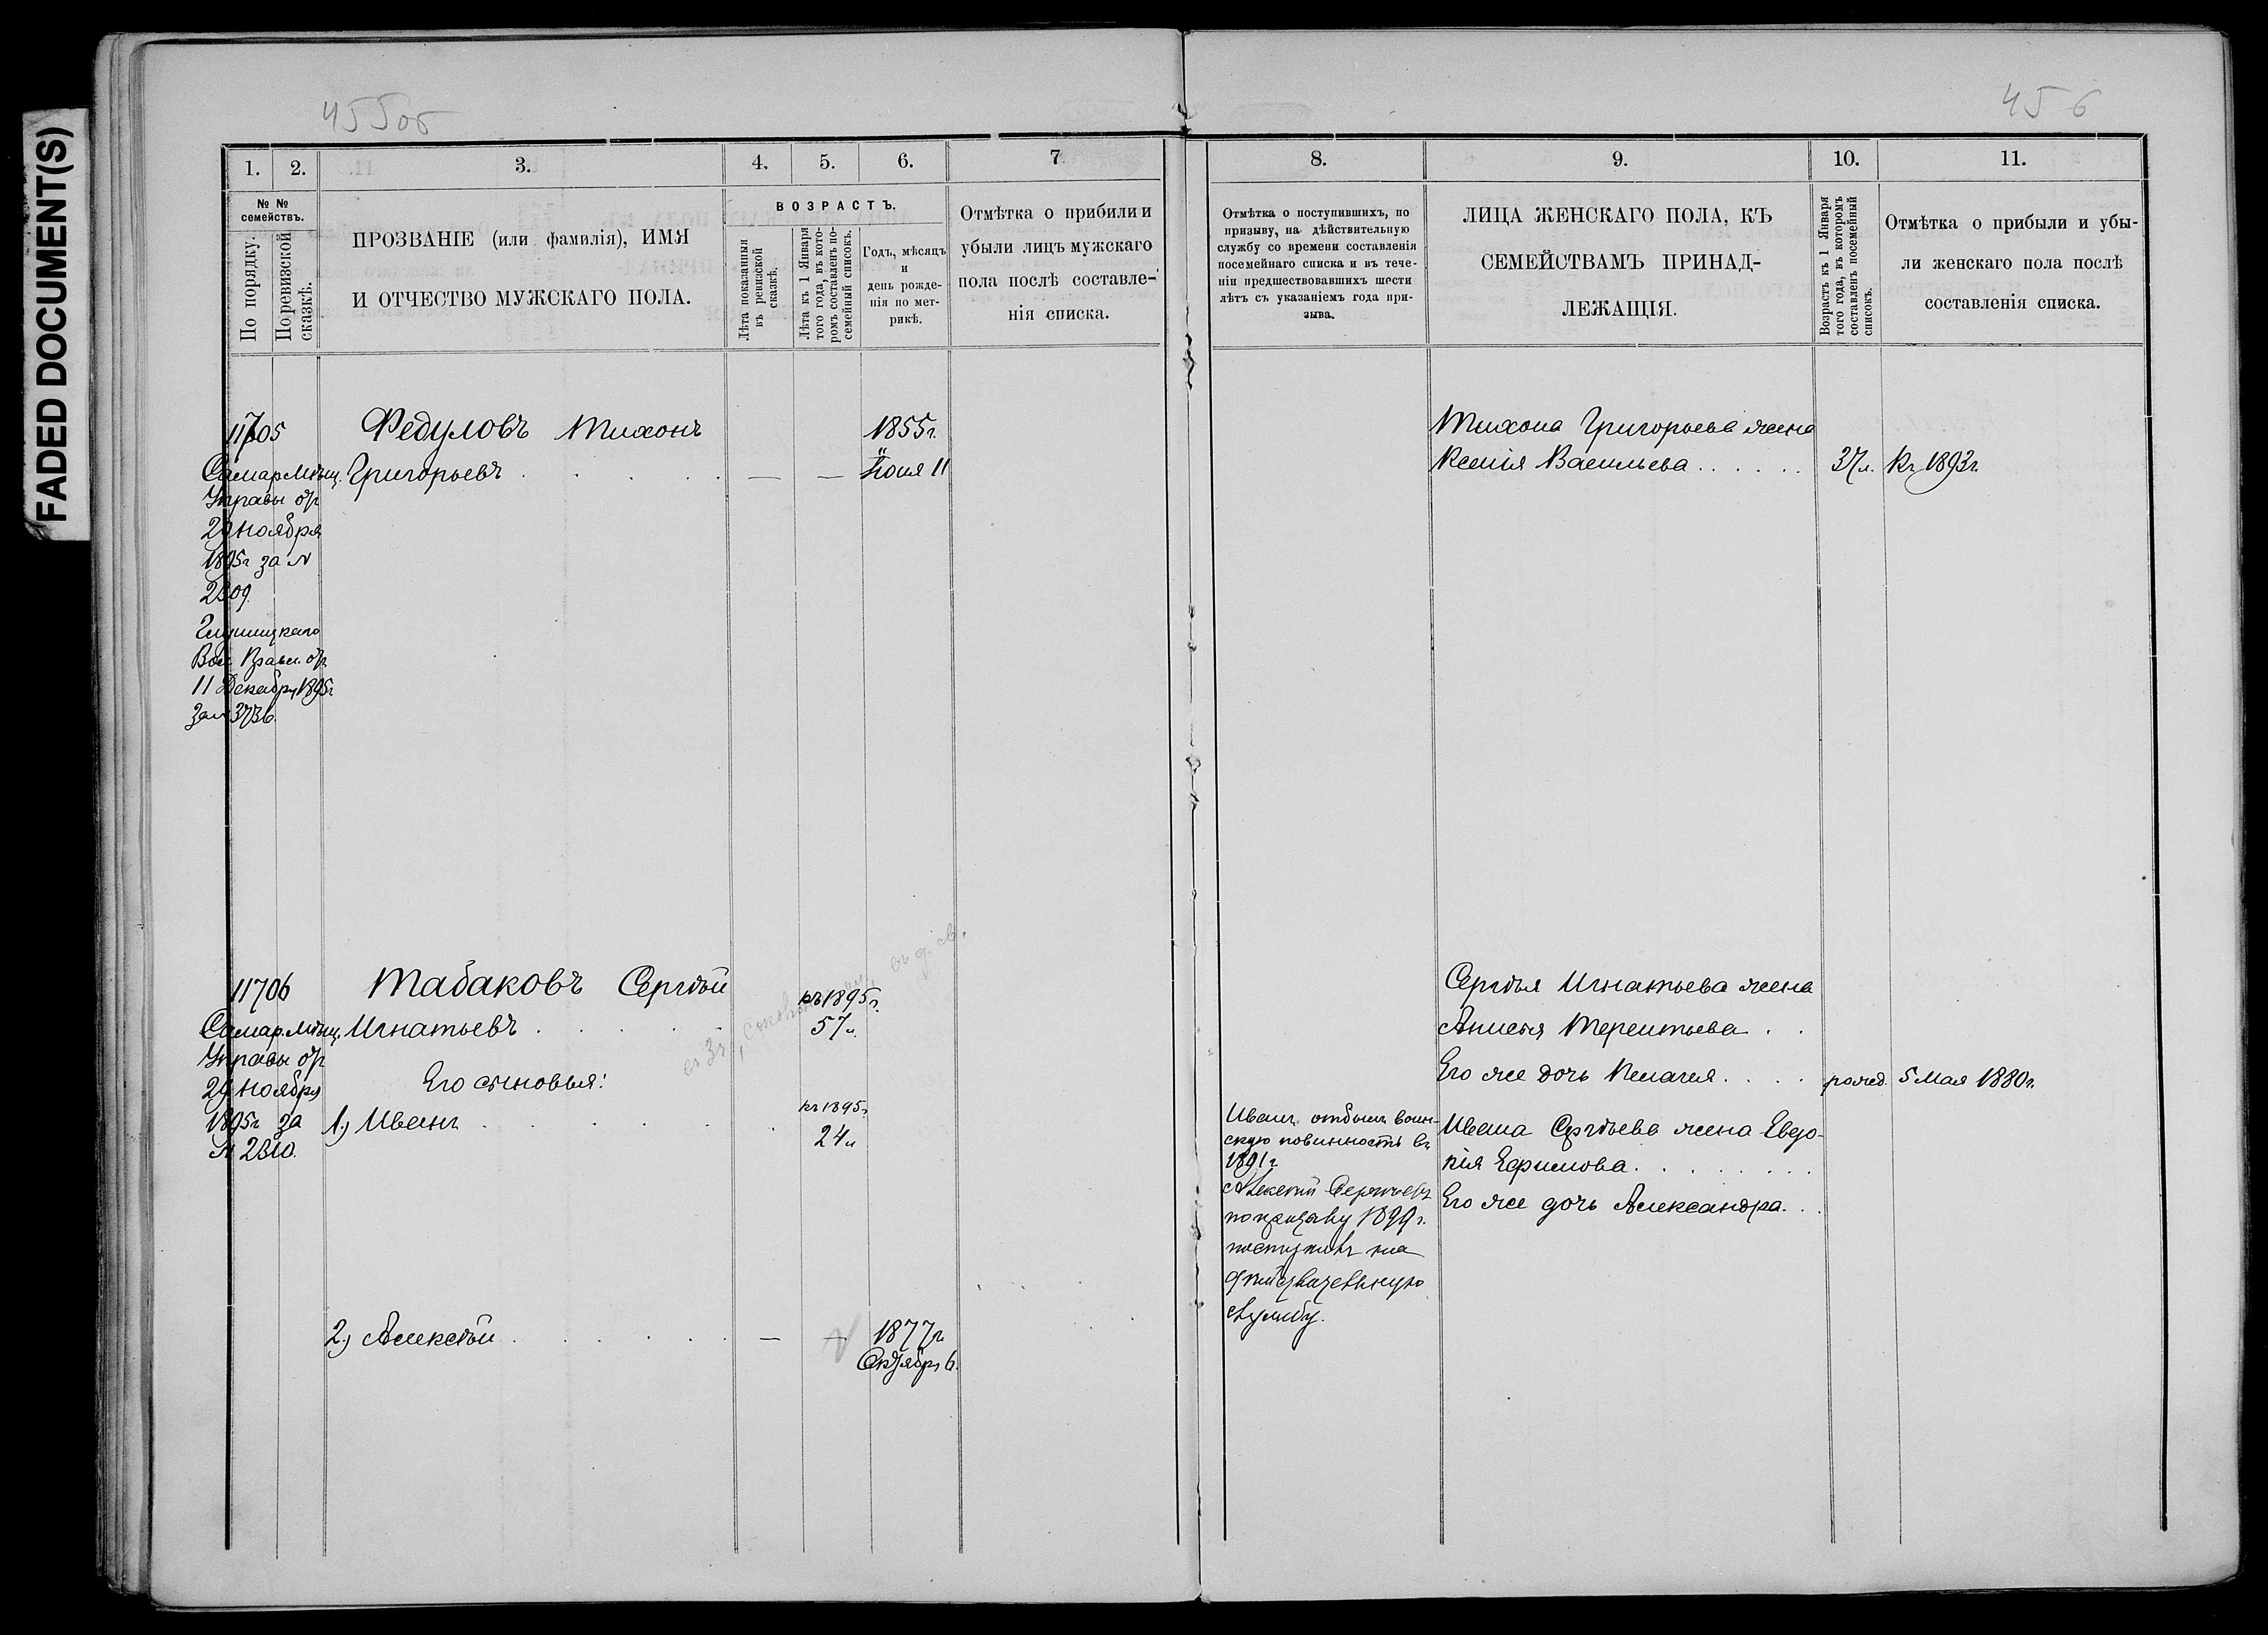 FADED DOCUMENT(S)
455об
456
1. 2. 3. 4. 5. 6. 7
№ №
семействъ.
По порядку.
По ревизской
сказкѣ.
ПРОЗВАНІЕ (или фамилія), ИМЯ
И ОТЧЕСТВО МУЖСКАГО ПОЛА.
ВОЗРАСТЪ.
Лѣта показанія
въ ревизской
сказкѣ.
Лѣта къ 1 Января
того года, въ кото-
ромъ составленъ по-
семейный списокъ.
Годъ, мѣсяцъ
и
день рожде-
нія по мет-
рикѣ.
Отмѣтка о прибыли и
убыли лицъ мужскаго
пола послѣ составле-
нія списка.
11705
Самар. Мѣщ.
Управы от
29 Ноября
1895г за №
2809.
Вол. Правл. от
11 Декабря 1895г
за № 3736.
Федуловъ Тихонъ
Григорьевъ
— —
1855г.
Іюня 11
11706
Самар. Мѣщ.
Управы от
29 Ноября
1895г за
№ 2810.
Табаковъ Сергѣй
Игнатьевъ
къ 1895г.
57л.
Его сыновья:
1.) Иванъ
къ 1895г.
24л
2.) Алексѣй
— —
1877г.
Октября 6.
8. 9. 10. 11.
Отмѣтка о поступившихъ, по
призыву, на дѣйствительную
службу со времени составленія
посемейнаго списка и въ тече-
ніи предшествовавшихъ шести
лѣтъ съ указаніемъ года при-
зыва.
ЛИЦА ЖЕНСКАГО ПОЛА, КЪ
СЕМЕЙСТВАМЪ ПРИНАД-
ЛЕЖАЩІЯ.
Возрастъ къ 1 Января
того года, въ которомъ
составленъ посемейный
списокъ.
Отмѣтка о прибыли и убы-
ли женскаго пола послѣ
составленія списка.
Тихона Григорьева жена
Ксенія Васильева 37л. Къ 1893г.
Сергѣя Игнатьева жена
Анисья Терентьева
Его же дочь Пелагея рожд. 5 Мая 1880г.
Иванъ отбылъ воин-
скую повинность въ
1891г
Алексѣй Сергѣевъ
по призыву 1899г.
поступилъ на
дѣйствительную
службу.
Ивана Сергѣева жена Евдо-
кія Ефимова
Его же дочь Александра